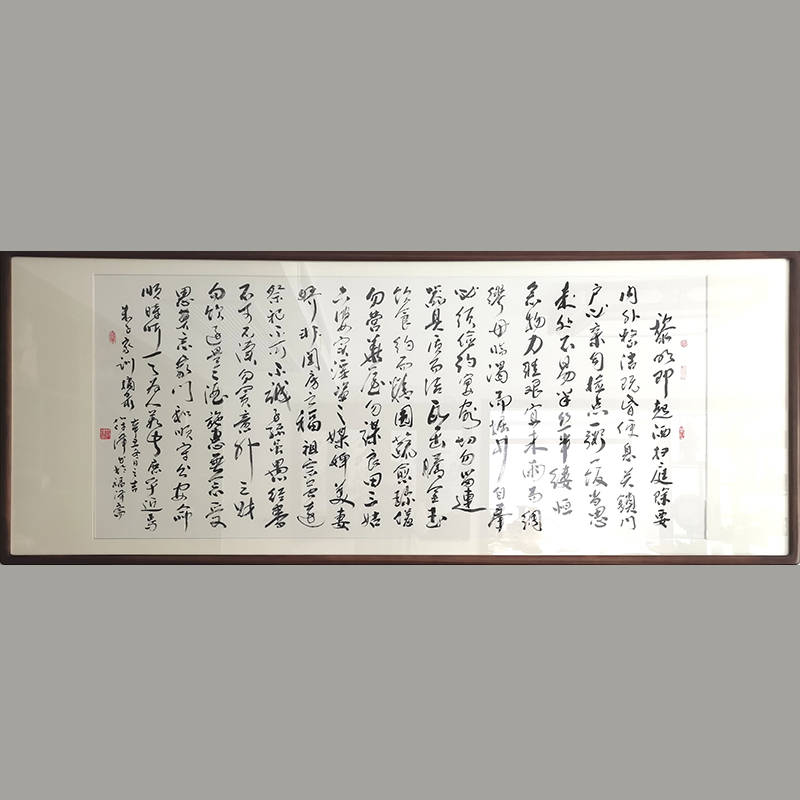 黎明即起洒扫庭除要
内外整洁既昏便息关锁门
户必亲自检点一粥一饭当思
来处不易半丝半缕恒
念物力维艰宜未雨而绸
缪毋临渴而掘井自奉
必须俭约宴客切勿留连
器具质而洁瓦缶胜金玉
饮食约而精园蔬愈珍馐
勿营华屋勿谋良田三姑
六婆实淫盗之媒婢美妻
娇非闺房之福祖宗虽远
祭祀不可不诚子孙虽愚经书
不可不读勿贪意外之财
勿饮过量之酒施惠无念受
恩莫忘家门和顺守分安命
顺时听天为人若此庶乎近焉
朱子家训摘录
辛丑冬日之吉